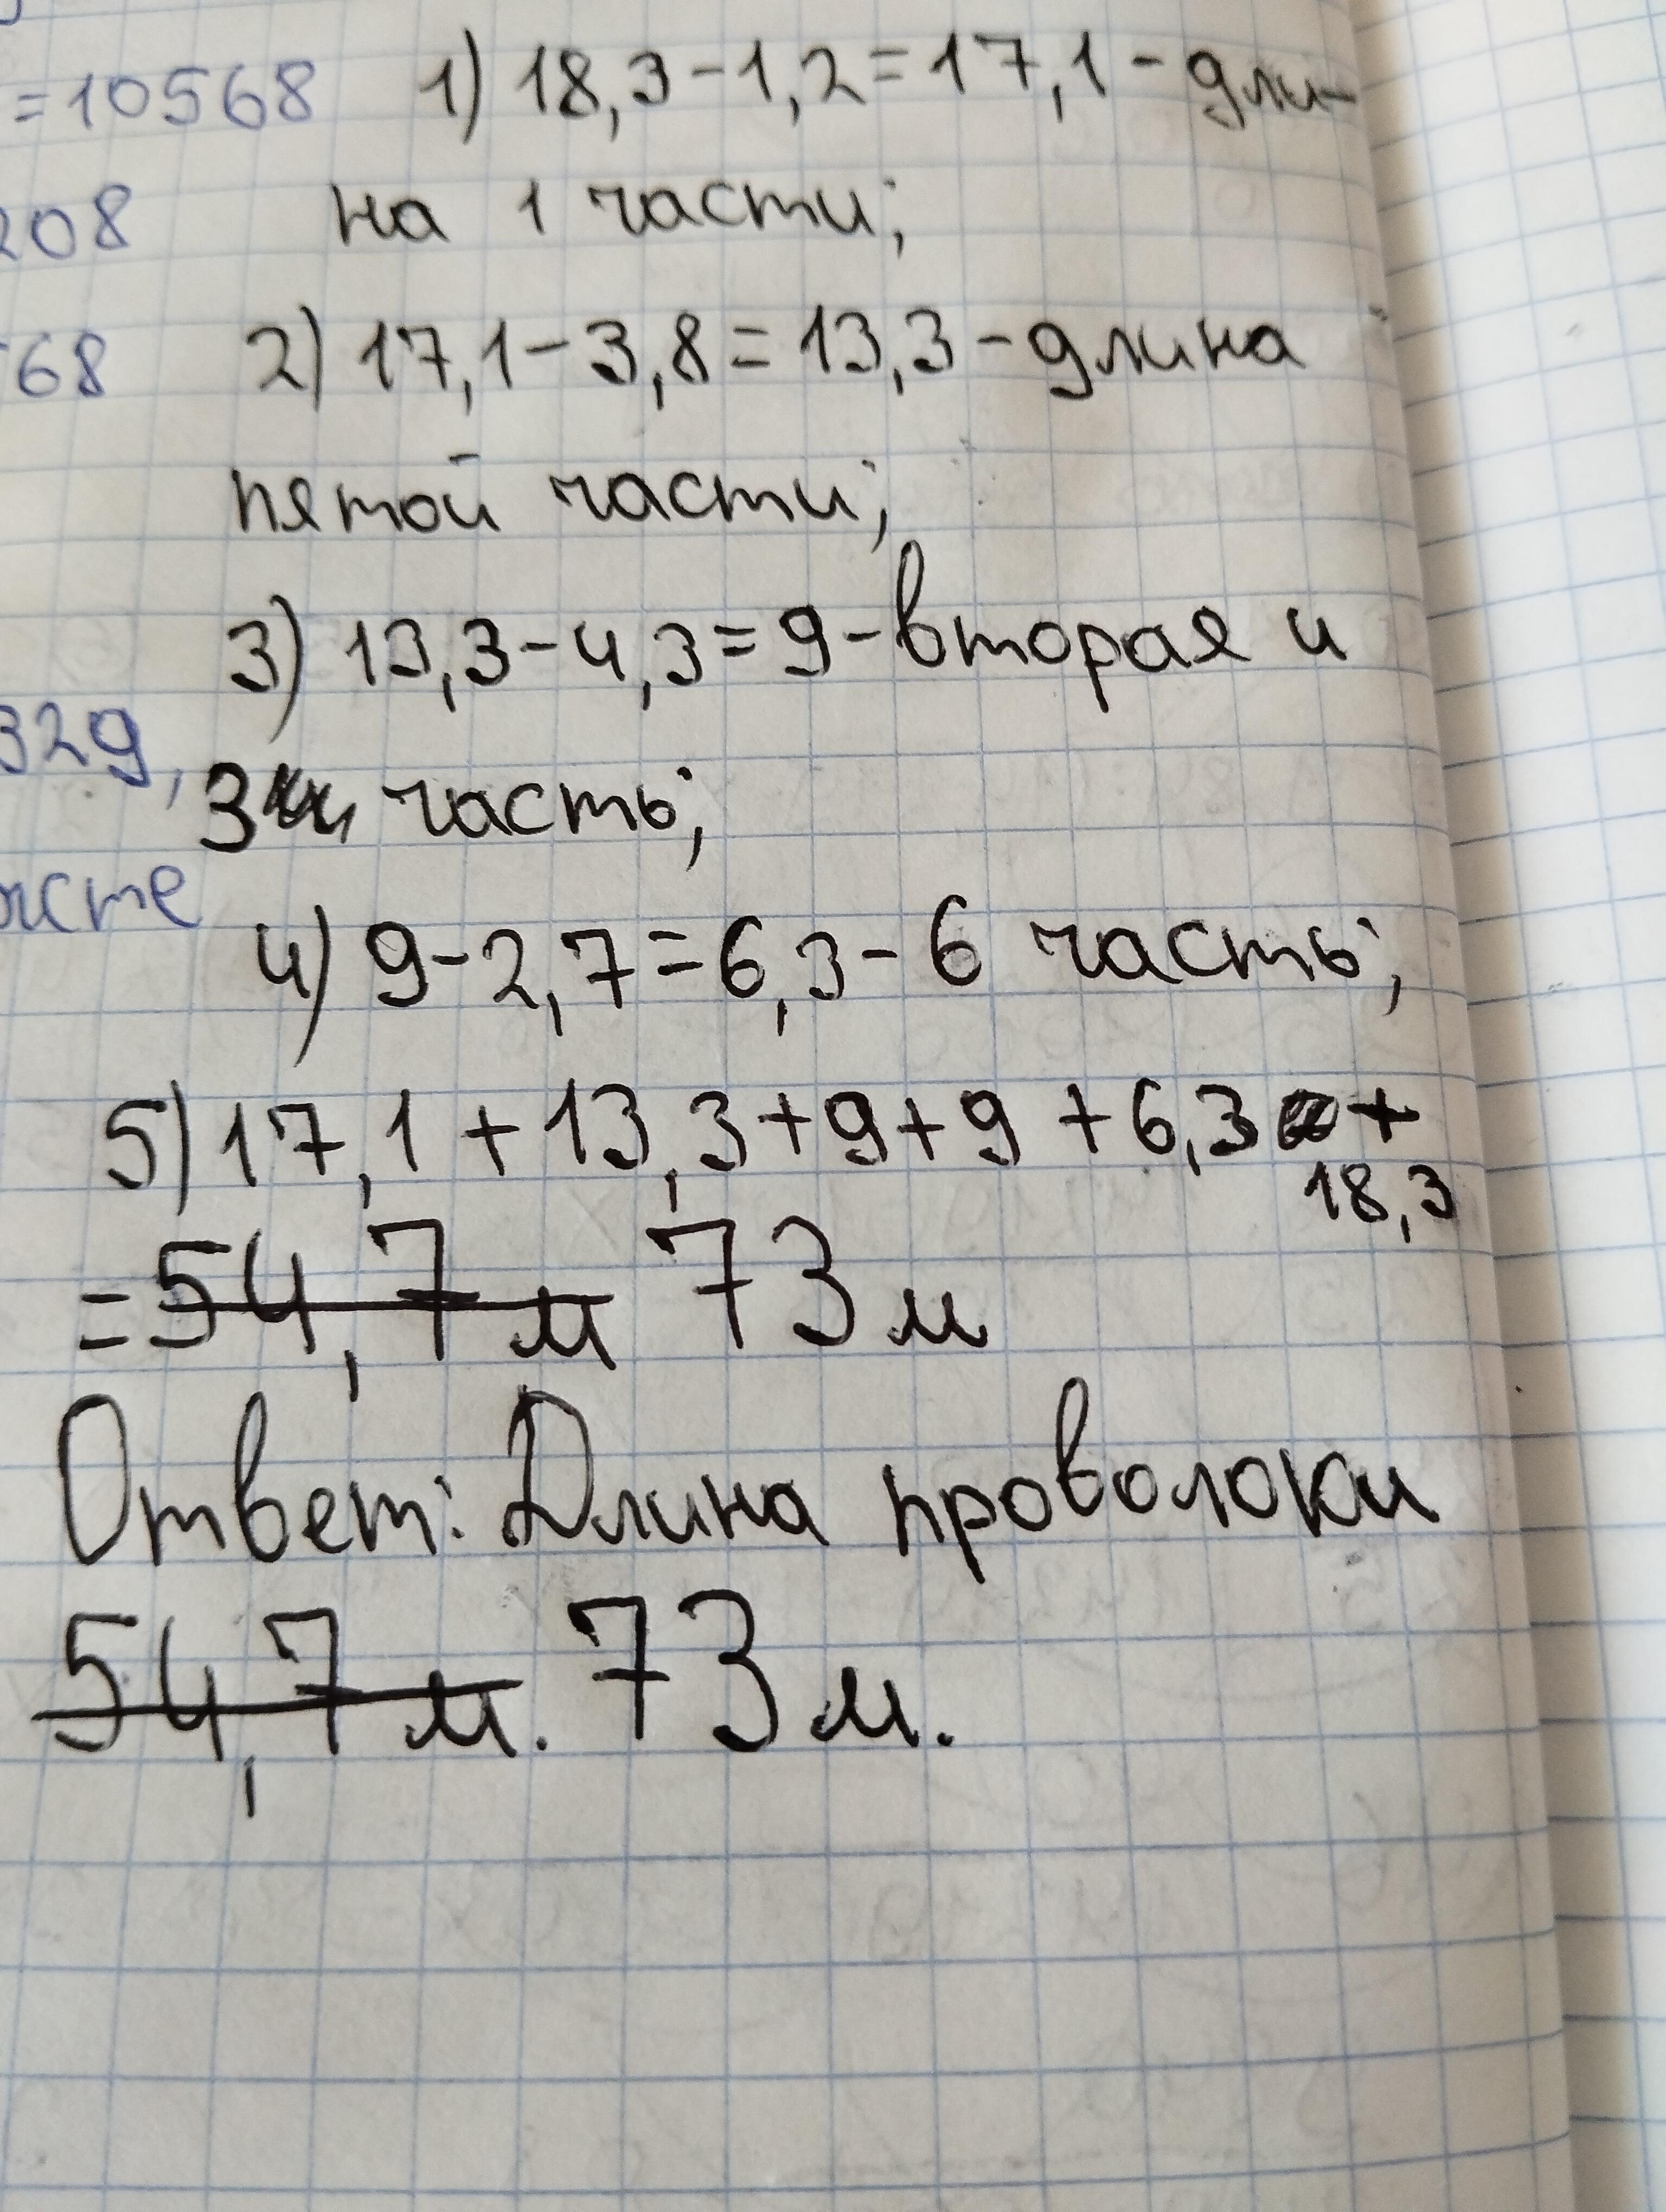 =10568
208
68
329,
1) 18,3-1,2=17,1-дли-
на 1 части;
2) 17,1-3,8=13,3-длина
пятой части;
3) 13,3-4,3=9-вторая и
3 часть;
4) 9-2,7=6,3-6 часть;
5) 17,1+13,3+9+9+6,3+
18,3
=54,7м 73м
Ответ: Длина проволоки
54,7м. 73м.